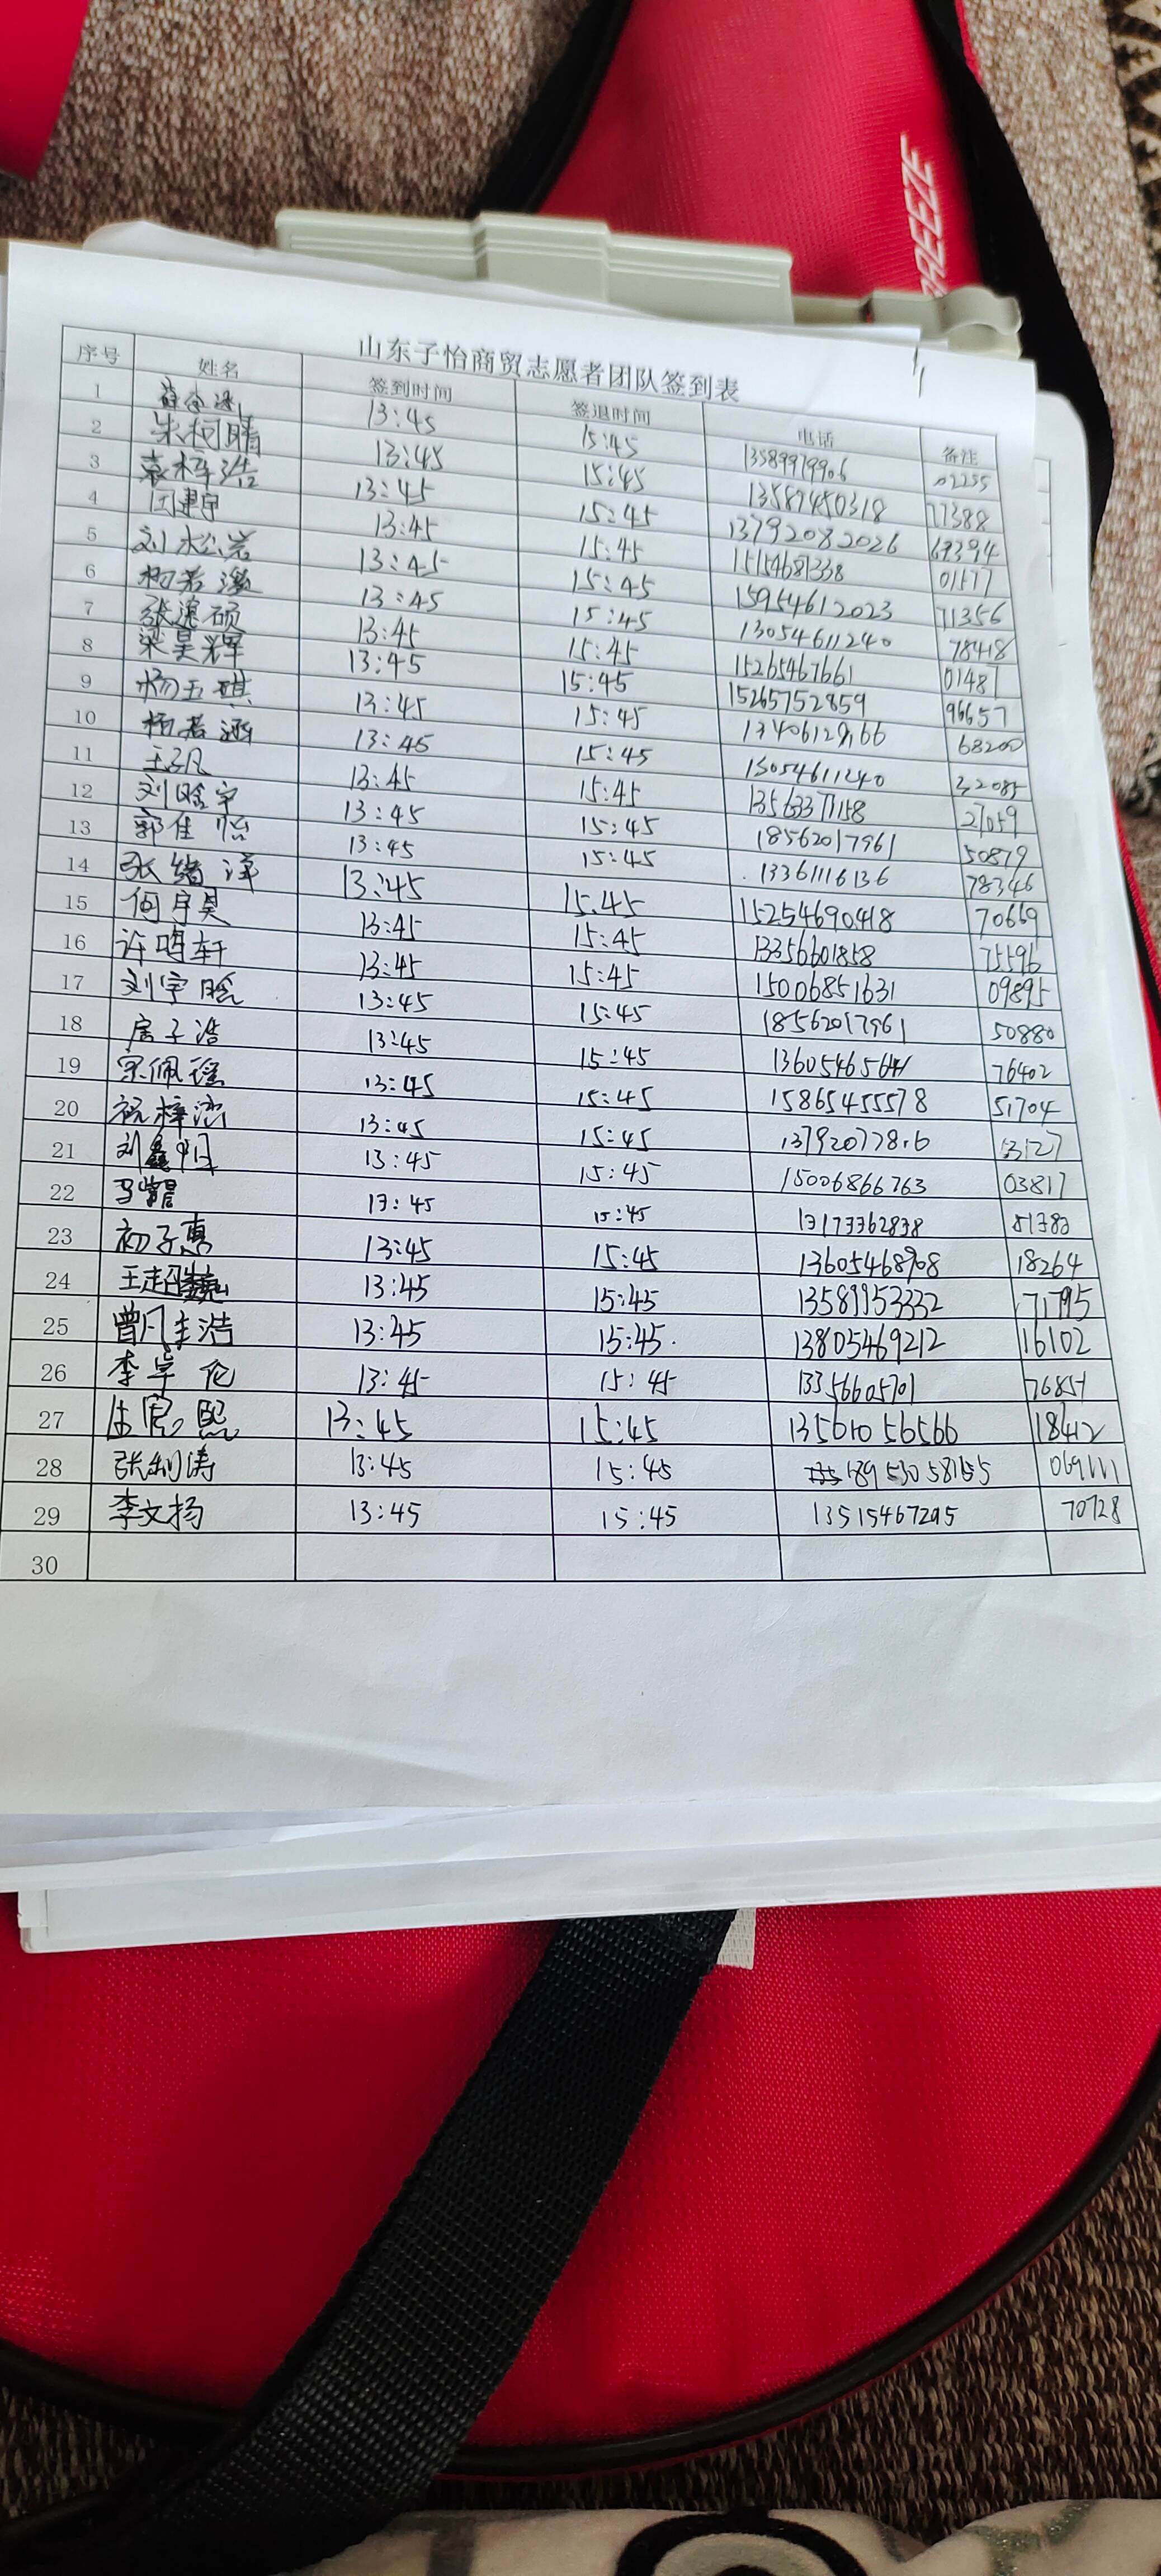 BREEZE
山东子怡商贸志愿者团队签到表
序号 姓名 签到时间 签退时间 电话 备注
1 13:45 15:45 13589979906 02255
2 朱柯晴 13:45 15:45 13587450318 77388
3 袁梓浩 13:45 15:45 13792082026 69394
4 田建宇 13:45 15:45 15154681338 01577
5 刘松岩 13:45 15:45 15954612023 71356
6 杨若澈 13:45 15:45 13054611240 78418
7 张宸硕 13:45 15:45 15265467661 01487
8 梁昊辉 13:45 15:45 15265752859 96657
9 杨玉琪 13:45 15:45 13406129166 68200
10 杨若涵 13:45 15:45 13054611240 32085
11 王子凡 13:45 15:45 13563377158 27059
12 刘晗宇 13:45 15:45 18562017961 50879
13 郭佳怡 13:45 15:45 13361116136 78346
14 张绪洋 13:45 15:45 15254690418 70669
15 何宇昊 13:45 15:45 13356601858 75596
16 许鸣轩 13:45 15:45 15006851631 09895
17 刘宇晗 13:45 15:45 18562017961 50880
18 房子浩 13:45 15:45 13605465641 76402
19 宋佩瑶 13:45 15:45 15865455578 51704
20 祝梓涵 13:45 15:45 13792077816 13127
21 刘鑫 13:45 15:45 15006866763 03817
22 13:45 15:45 13173362838 81383
23 初子惠 13:45 15:45 13605468908 18264
24 王超 13:45 15:45 13589953332 71795
25 曾凡圭浩 13:45 15:45 13805469212 16102
26 李宇伦 13:45 15:45 13356605701 76857
27 13:45 15:45 13561056566 18412
28 张利涛 13:45 15:45 18953058155 069111
29 李文扬 13:45 15:45 13515467295 70728
30